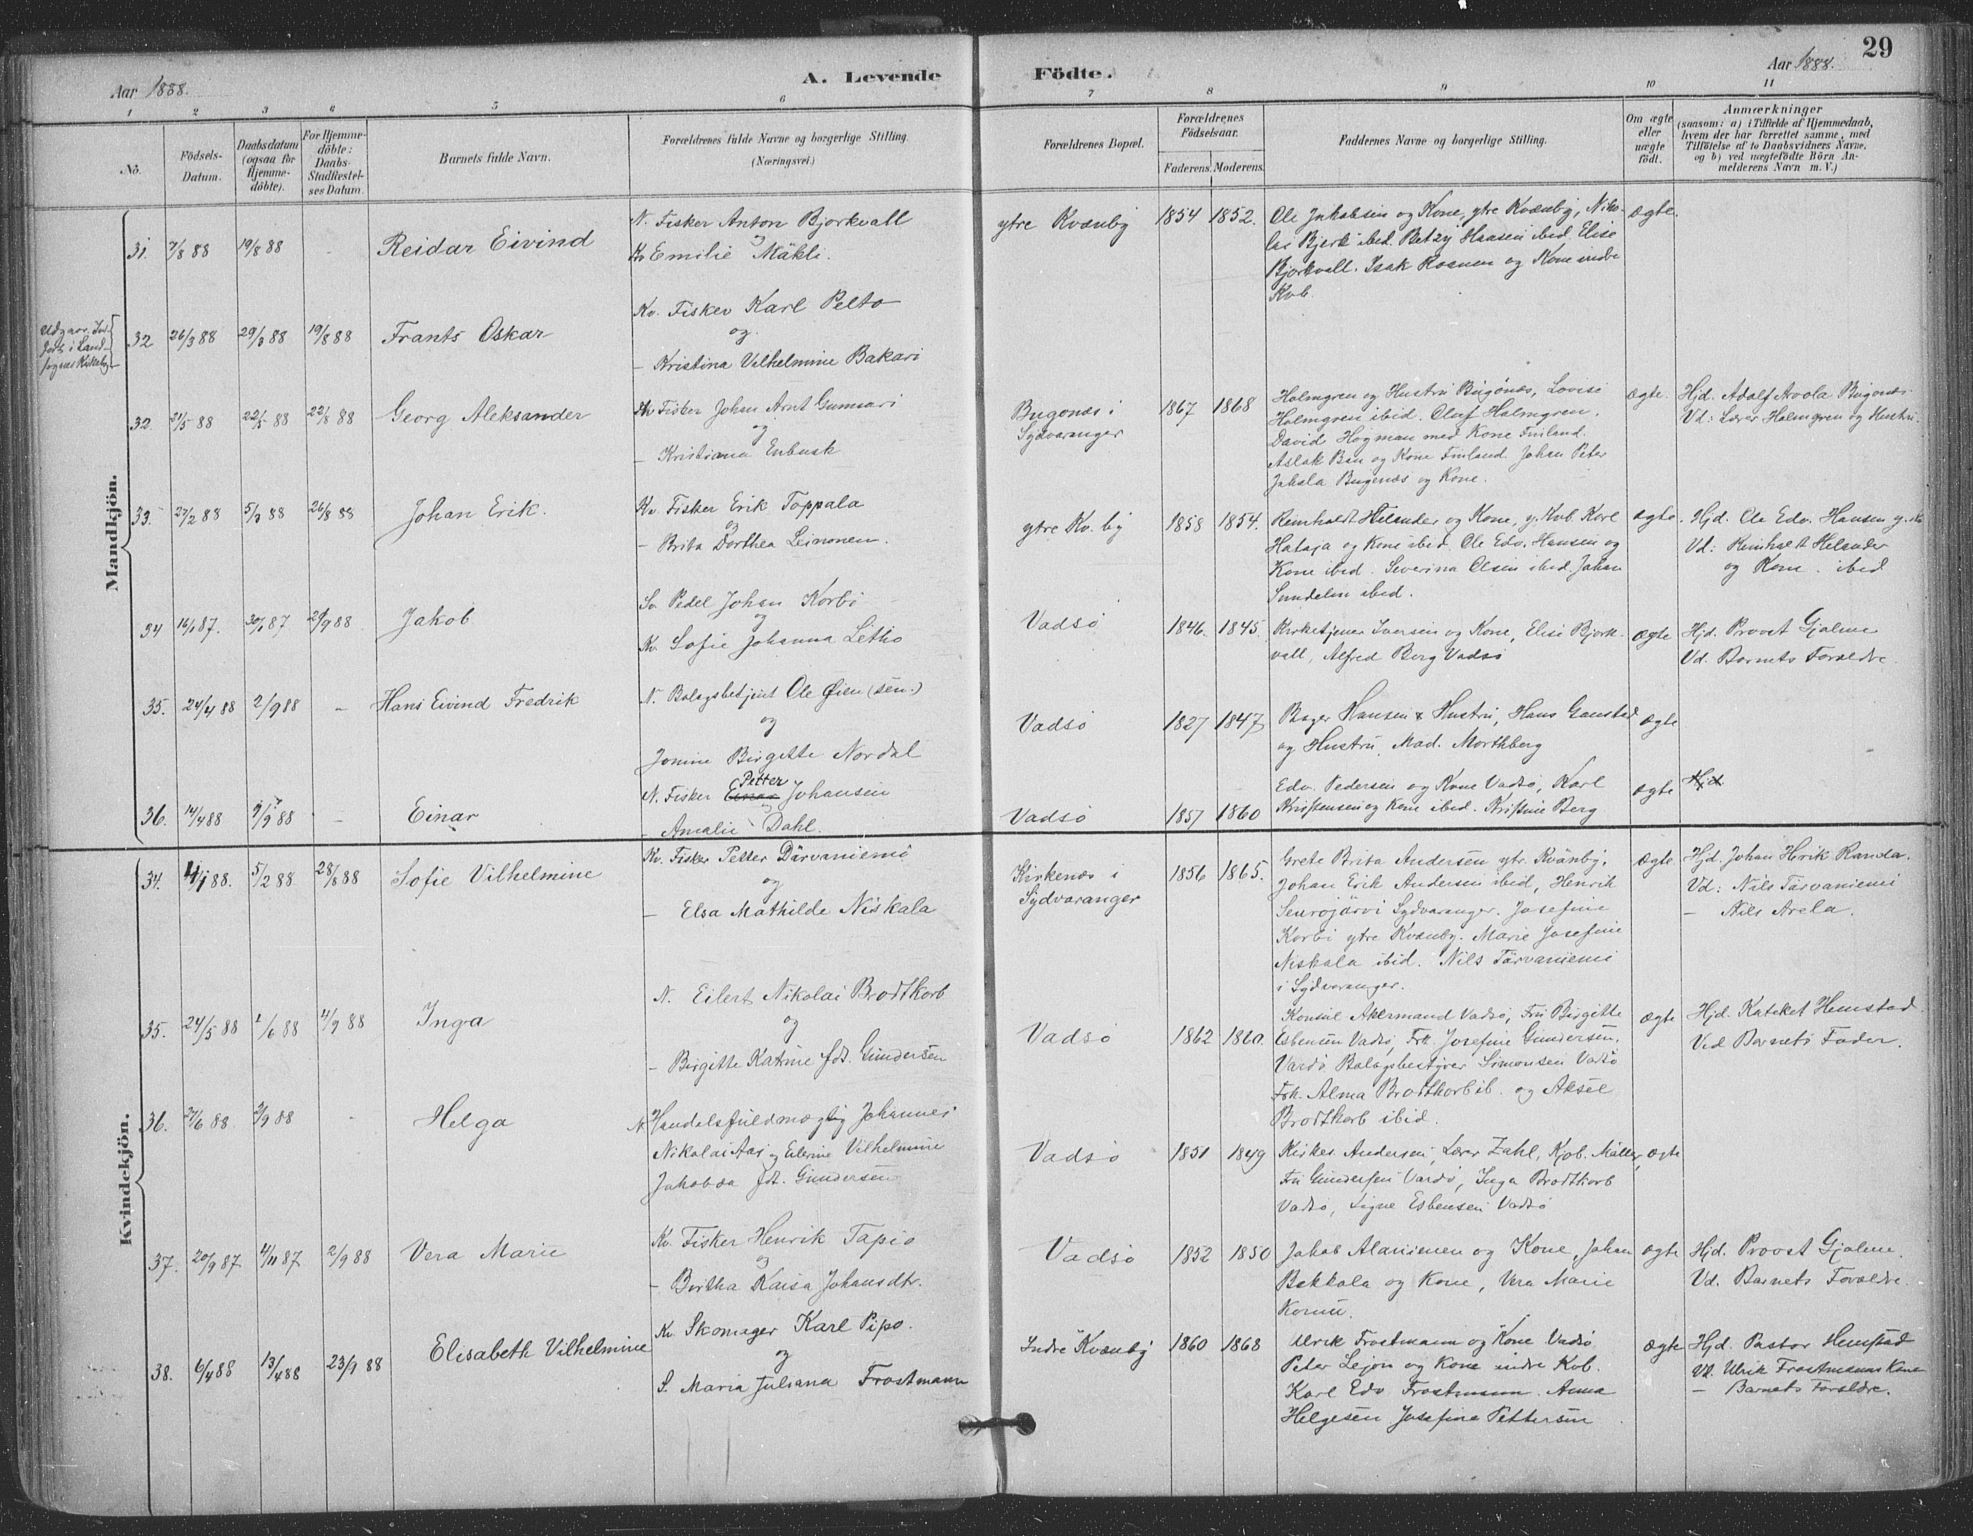 Aar 1888.
A. Levende Födte.
Aar 1888.
29
1 2 3 5 6 7 8 9 10 11
No.
Födsels-Datum.
Daabsdatum (ogsaa for Hjemme-döbte).
For Hjemme-döbte: Daabs-Stadfæstel-ses Datum.
Barnets fulde Navn.
Forældrenes fulde Navne og borgerlige Stilling.
(Næringsvei.)
Forældrenes Bopæl.
Forældrenes Födselsaar.
Faderens. Moderens.
Faddernes Navne og borgerlige Stilling.
Om ægte eller uægte födt.
Anmærkninger
(saasom: a) i Tilfælde af Hjemmedaab, hvem der har forrettet samme, med Tilföielse af to Daabsvidners Navne, og b) ved uægtefödte Börn An-melderens Navn m. V.)
Mandkjön.
31. 7/8 88 19/8 88 - Reidar Eivind
N. Fisker Anton Bjorkvall
og
Kv Emilie Mäkli.
ytre Kvænby 1854 1852.
Ole Jakobsen og Kone, ytre Kvænby, Niko-
lai Bjerk ibid. Betzy Hansen ibid Elise
Bjorkvall. Isak Rosnen og Kone indre
Kvb.
ægte.
32 26/3 88 29/3 88 19/8 88 Frants Oskar
Kv. Fisker Karl Pelto
og
- Kristina Vilhelmine Bakari
32. 21/5 88 22/5 88 22/8 88 Georg Aleksander
Kv Fisker Johan Arnt Gunnari
og
- Kristiana Enbusk
Bugönæs i
Sydvaranger
1867 1868
Holmgren og Hustru Bugönæs, Lovise
Holmgren ibid. Oluf Holmgren.
David Hogman med Kone Finland.
Aslak Ban og Kone Finland. Johan Peter
Jakola Bugenæs og Kone.
ægte.
Hjd. Adolf Avola Bugenæs
Vd: Lærer Holmgren og Hustru.
33. 27/2 88 5/3 88 26/8 88 Johan Erik.
Kv. Fisker Erik Toppala
og
- Brita Dorthea Leinonen.
ytre Kv. by 1858 1854.
Reinholdt Helander og Kone, y. Kvb. Karl
Hataja og Kone ibid. Ole Edv. Hansen og
Kone ibid. Severina Olsen ibid. Johan
Sundelin ibid.
ægte.
Hjd. Ole Edv. Hansen
Vd: Reinholdt Helander
og Kone. ibid
34 16/1 87. 30/1 87 2/9 88 Jakob
Sv. Pedel Johan Korbi
og
Kv. Sofie Johanna Litho
Vadsö 1846. 1845.
Kirketjener Iversen og Kone, Elise Bjork-
vall, Alfred Berg Vadsö
ægte
Hjd. Provst Gjølme
Vd. Barnets Forældre.
35. 24/4 88 2/9 88 - Hans Eivind Fredrik
N. Bolagsbetjent Ole Øien (sen.)
og
Jonine Birgitte Nordal
Vadsö 1827 1847
Bager Hansen & Hustru, Hans Ganstad
og Hustru, Mad. Morthberg
ægte
36. 14/4 88 9/9 88 - Einar
N. Fisker Einar Petter Johansen
- Amalie Dahl.
Vadsö 1857 1860
Edv. Pedersen og Kone Vadsö, Karl
Kristensen og Kone ibid. Kristine Berg
ægte
Hjd
Kvindekjön.
34. 4/1 88. 5/2 88 28/8 88 Sofie Vilhelmine
Kv. Fisker Petter Därvaniemi
og
- Elsa Mathilde Niskala
Kirkenæs i
Sydvaranger
1856 1865.
Grete Brita Andersen ytr. Kvänby.
Johan Erik Andersen ibid, Henrik
Seurojärvi Sydvaranger. Josefine
Korbi ytre Kvænby. Marie Josefine
Niskala ibid. Nils Tärvaniemi
i Sydvaranger.
ægte
Hjd. Johan Hrik Randa.
Vd: Nils Tärvaniemi
- Nils Arela.
35. 24/5 88 1/6 88 4/9 88 Inga
N. Eilert Nikolai Brodtkorb
og
- Birgitte Katrine fdt. Gundersen
Vadsö 1862 1860.
Konsul Akermand Vadsö, Fru Birgitte
Esbensen Vadsö, Frk. Josefine Gundersen,
Vardö Bolagsbestyrer Simonsen Vadsö
Frk. Alma Brodtkorb ib. og Aksel
Brodtkorb ibid.
ægte
Hjd. Kateket Hemstad.
Ved Barnets Fader.
36. 27/6 88 9/9 88 - Helga
N Handelsfuldmægtig Johannes
Nikolai Aas og Elerine Vilhelmine
Jakobæa fdt. Gundersen
Vadsö 1851 1849
Kirkes. Andersen, Lærer Zahl, Kjøb. Möller,
Fru Gundersen Vardö, Inga Brodtkorb
Vadsö, Signe Esbensen Vadsö
ægte
37. 20/9 87 4/11 87 2/9 88 Vera Marie
Kv. Fisker Henrik Tapio
og
- Bertha Kaisa Johansdtr.
Vadsö 1852 1850
Jakob Alaniemen og Kone, Johan
Bekkala og Kone, Vera Marie
ægte
Hjd. Provst Gjølme.
Vd. Barnets Forældre.
38. 6/4 88 13/4 88 23/9 88 Elisabeth Vilhelmine
Kv. Skomager Karl Pipo.
og
S. Maria Juliana Frostmann
Indre Kvænby 1860 1868
Ulrik Frostmann og Kone Vadsö
Peter Lejon og Kone indre Kvb.
Karl Edv Frostmann. Anna
Helgesen Josefina Pettersen
ægte
Hjd. Pastor Hemstad
Vd. Ulrik Frostmanns Kone
- Barnets Forældre.